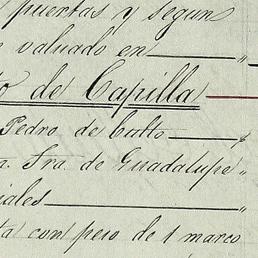 puertas y segun
valuado en „
to de Capilla
Pedro de Calto $
a. Sra. de Guadalupe „
iales „
ta con peso de 1 marco